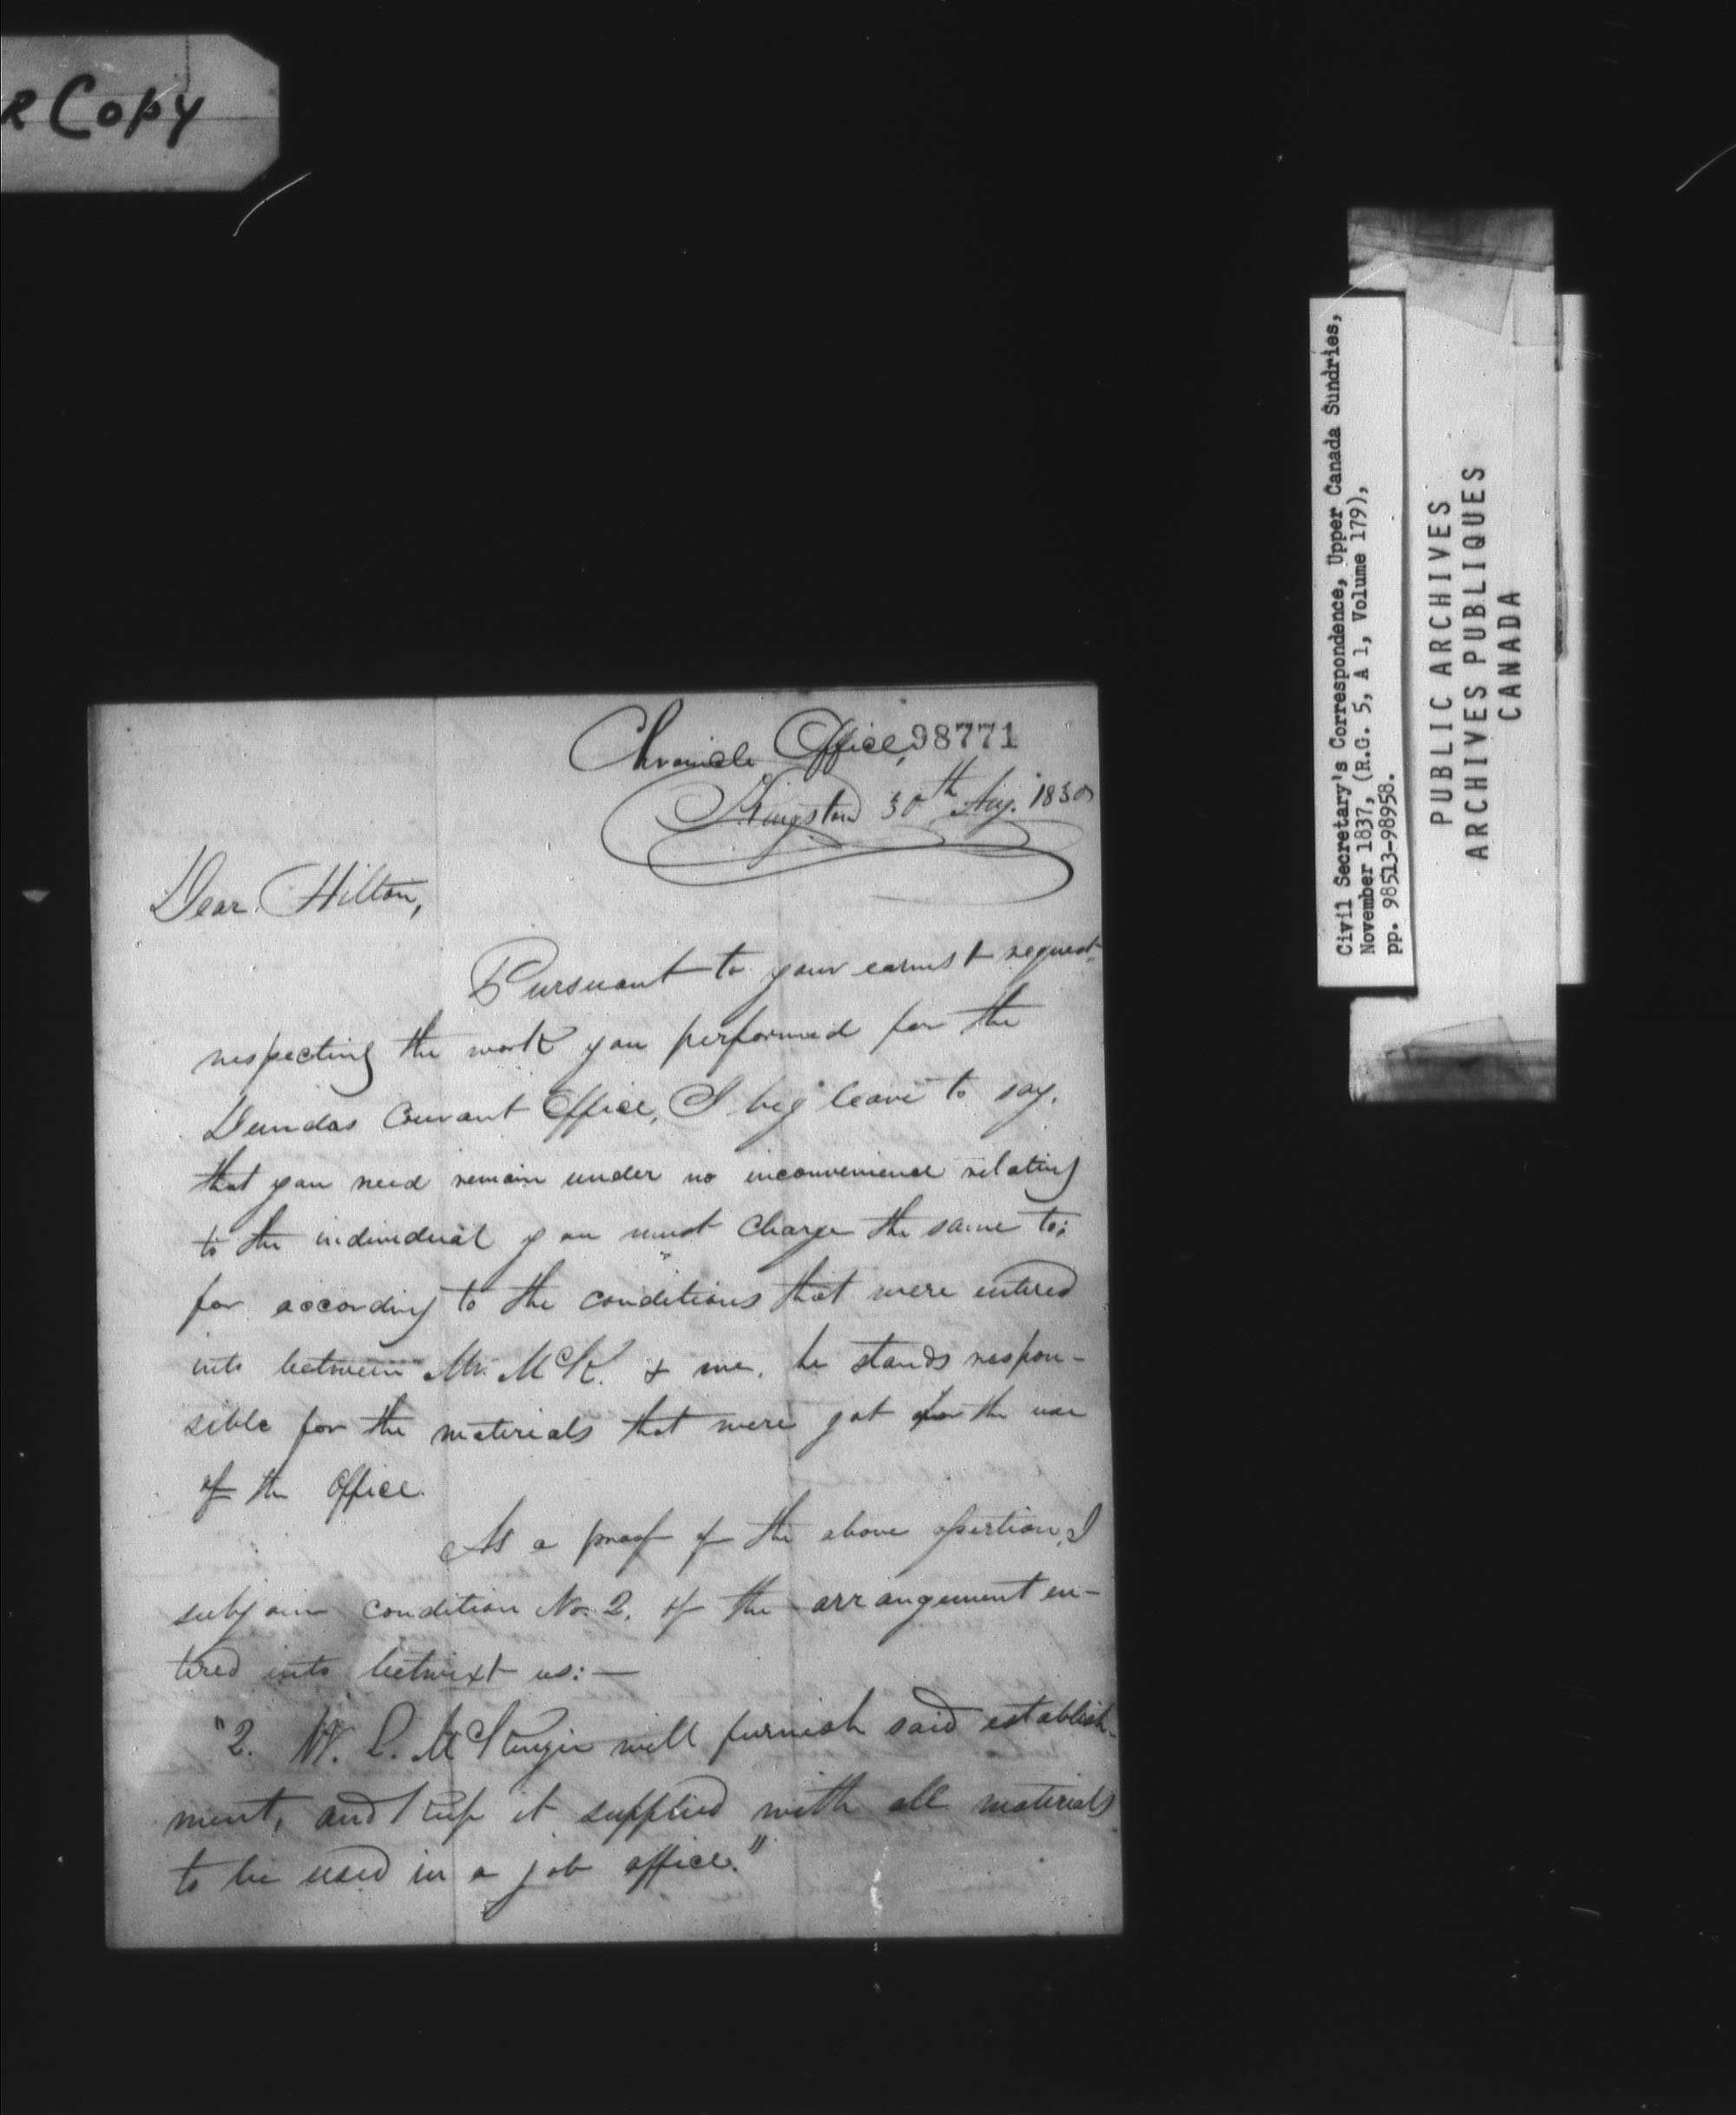 R Copy
Chronicle Office, 98771
Kingston 30th Aug. 1830
Dear Hilton,
Pursuant to your earnest request
respecting the work you performed for the
Dundas Courant Office, I beg leave to say,
that you need remain under no inconvenience relating
to the individual you must charge the same to;
for according to the conditions that were entered
into between Mr. McK. & me, he stands respon-
sible for the materials that were got for the use
of the Office.
As a proof of the above assertion, I
subjoin condition No. 2. of the arrangement en-
tired into betwixt us:—
"2. W. L. McKenzie will furnish said establish-
ment, and keep it supplied with all materials
to be used in a job office."
Civil Secretary's Correspondence, Upper Canada Sundries,
November 1837, (R.G. 5, A 1, Volume 179),
pp. 98513-98958.
PUBLIC ARCHIVES
ARCHIVES PUBLIQUES
CANADA